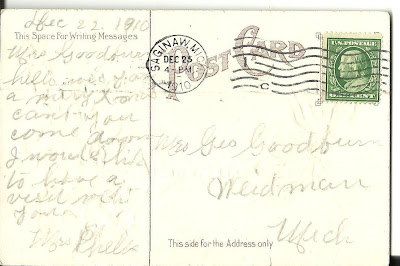 Dec 22, 1910
This Space for Writing Messages
Mrs Goodburn
hello
a merry Xmas
can't you
come down
I would like
to have a
visit with
you
Mrs Phelps
SAGINAW, MICH.
DEC 23
4-PM
1910
POST CARD
U.S. POSTAGE
Mrs Geo Goodburn
Weidman
Mich
This side for the Address only